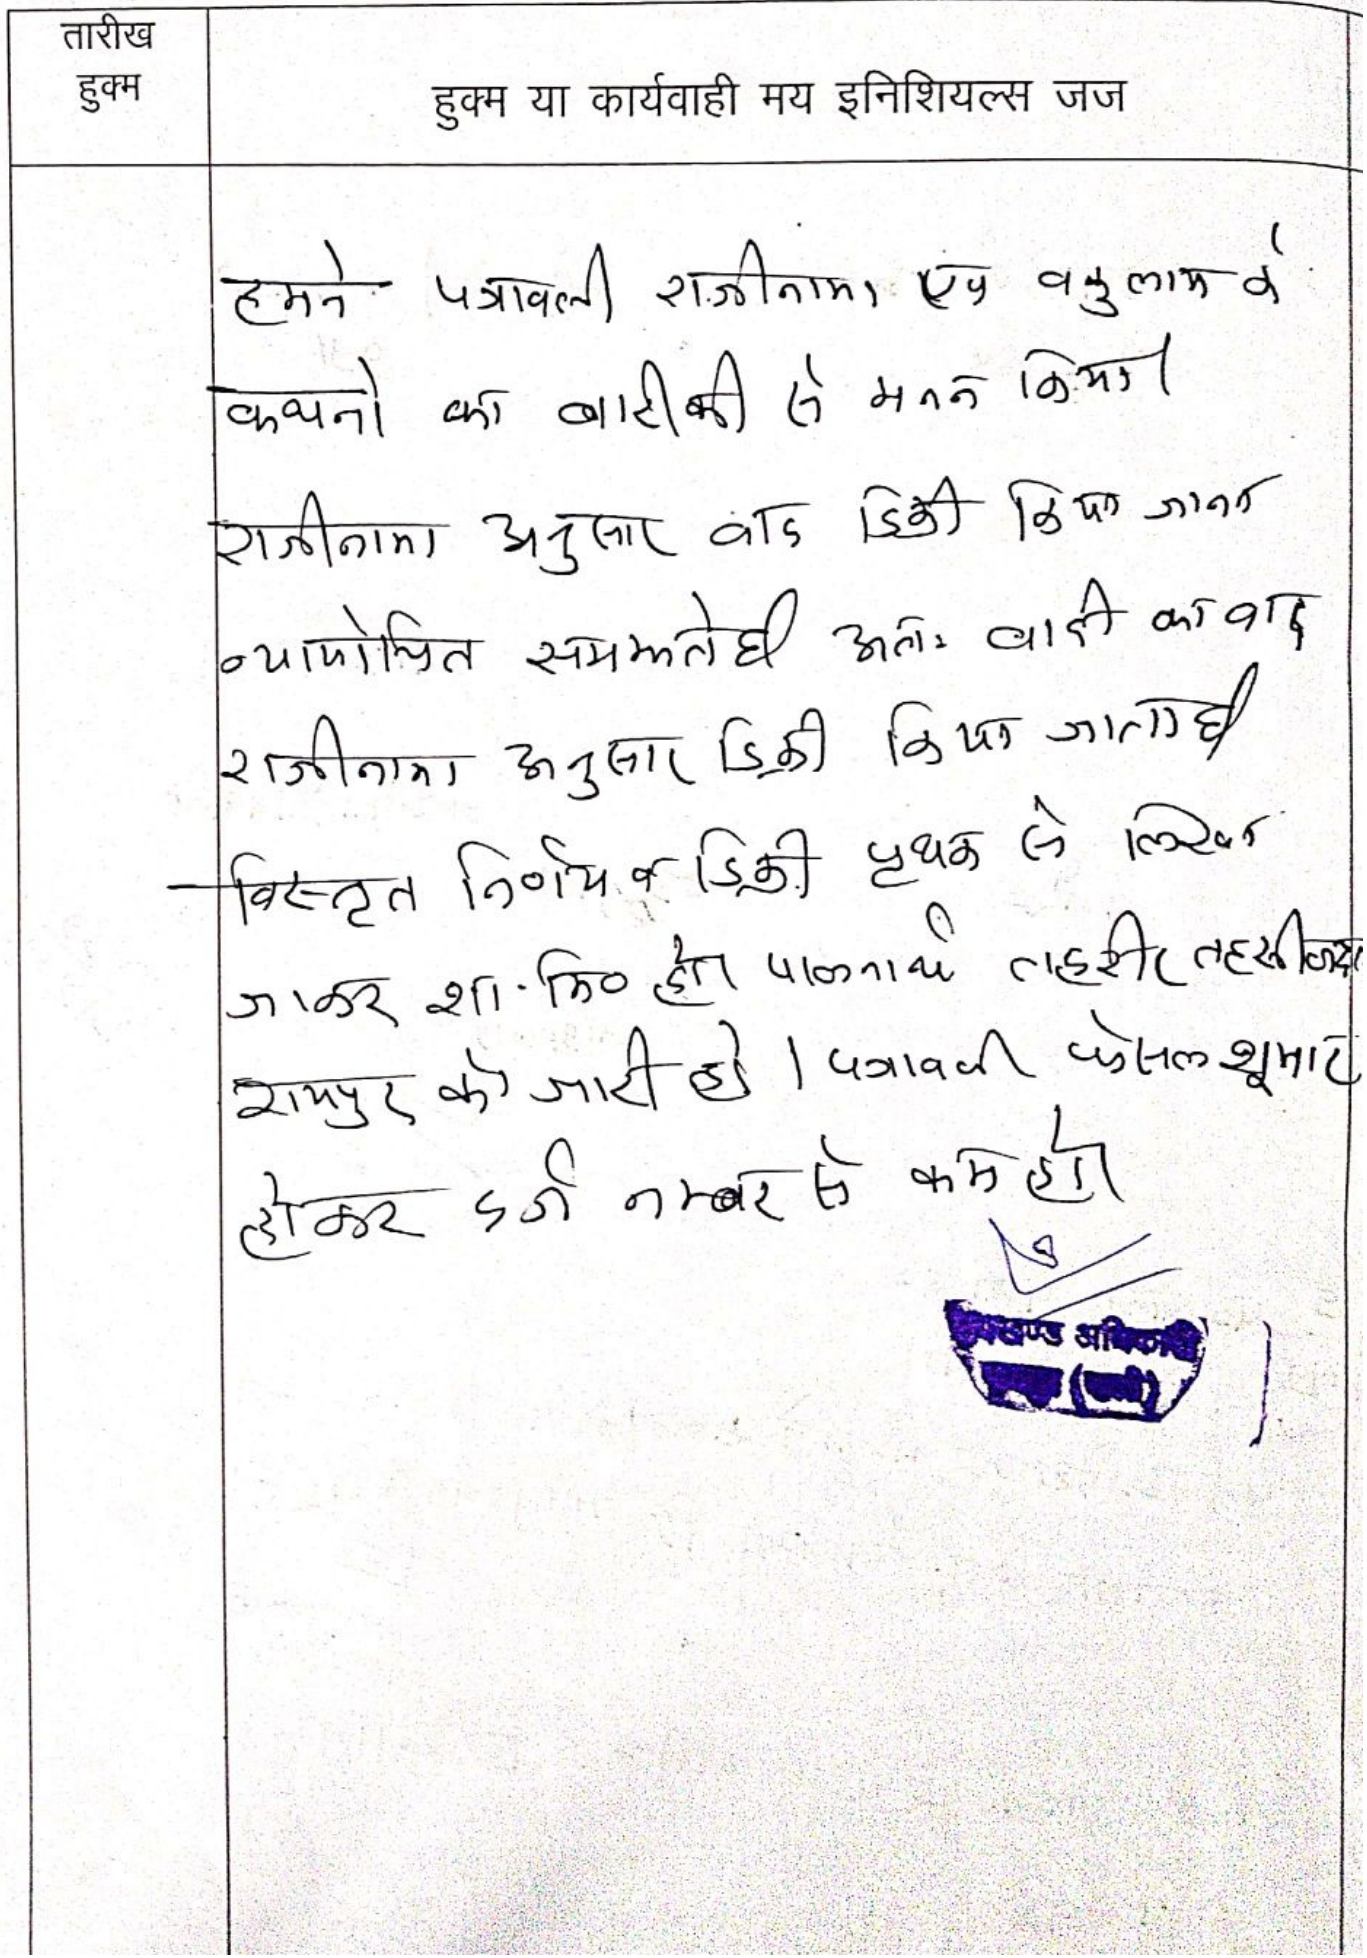 तारीख
हुक्म
हुक्म या कार्यवाही मय इनिशियल्स जज
हमने पत्रावली राजीनामा एवं वकुलाय के
कथनो का बारीकी से मनन किया।
राजीनामा अनुसार वाद डिक्री किया जाना
न्यायोचित समझते है। अतः वादी का वाद
राजीनामा अनुसार डिक्री किया जाता है।
विस्तृत निर्णय व डिक्री पृथक से लिखा
जाकर शा. मि० हो। पालनार्थ तहरीर तहसीलदार
रायपुर को जारी हो। पत्रावली फेसल शूमार
होकर दर्ज नम्बर से कम हो।
उपखण्ड अधिकारी